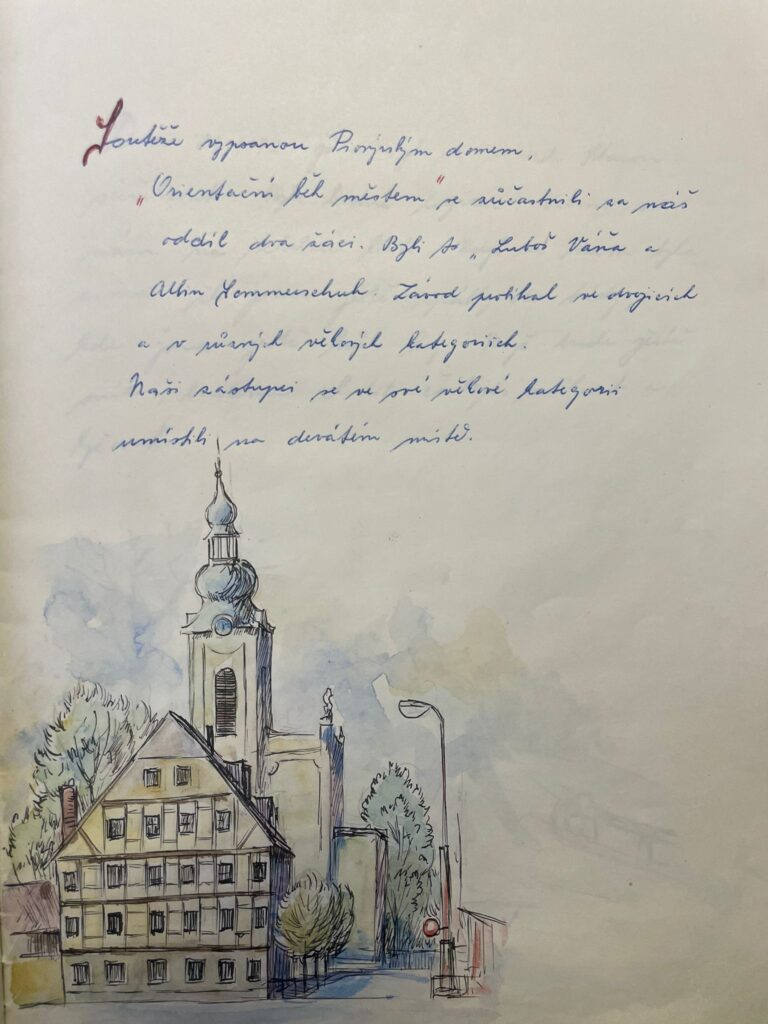 Soutěže vypsanou Pionýrským domem,
"Orientační běh městem" se zúčastnili za náš
oddíl dva žáci. Byli to „Luboš Váňa a
Albin Sommerschuh. Závod probíhal ve dvojicích
a v různých věkových kategoriích.
Naši zástupci se ve své věkové kategorii
umístili na devátém místě.